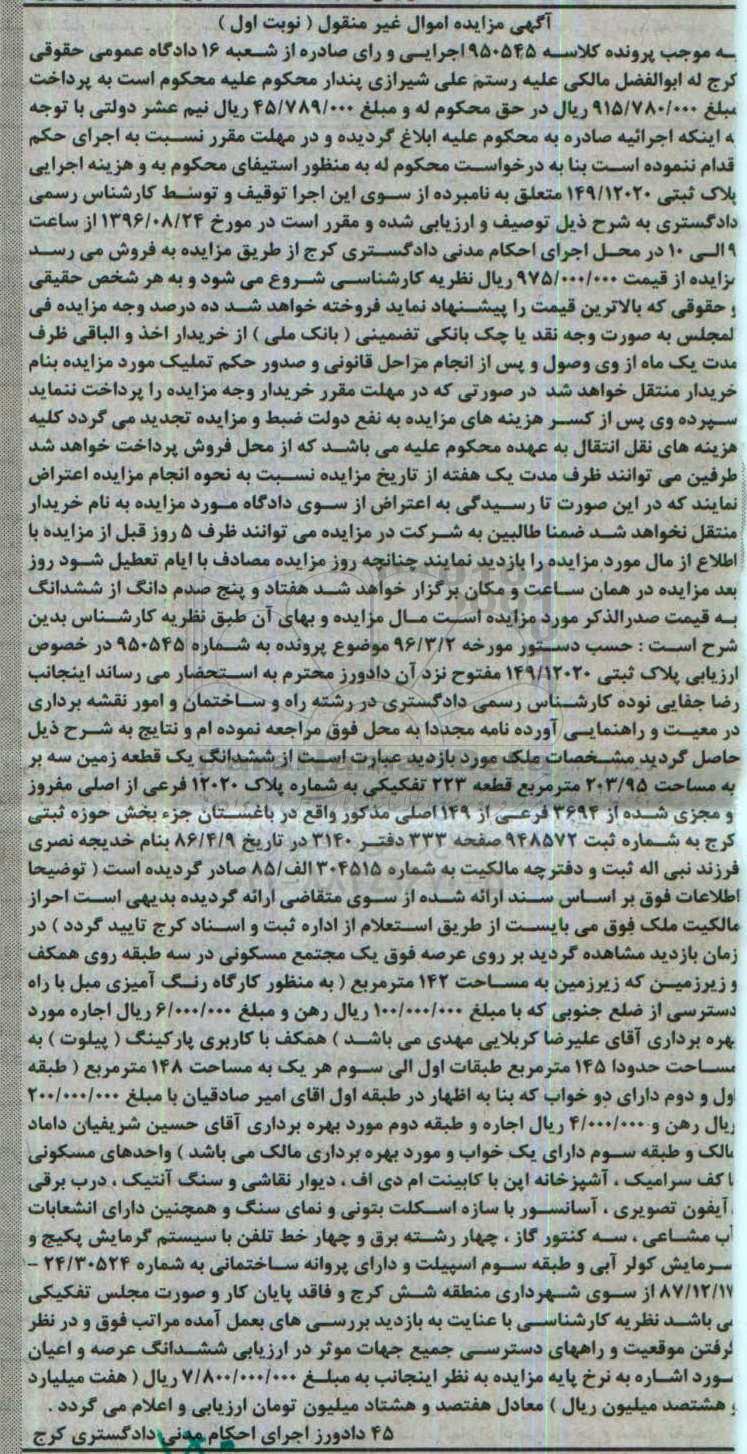 آگهی مزایده اموال غیر منقول ( نوبت اول )
به موجب پرونده کلاسه ۹۵۰۵۴۵ اجرایی و رای صادره از شعبه ۱۶ دادگاه عمومی حقوقی
کرج له ابوالفضل مالکی علیه رستم علی شیرازی پندار محکوم علیه محکوم است به پرداخت
مبلغ ۹۱۵/۷۸۰/۰۰۰ ریال در حق محکوم له و مبلغ ۴۵/۷۸۹/۰۰۰ ریال نیم عشر دولتی با توجه
ه اینکه اجرائیه صادره به محکوم علیه ابلاغ گردیده و در مهلت مقرر نسبت به اجرای حکم
قدام ننموده است بنا به درخواست محکوم له به منظور استیفای محکوم به و هزینه اجرایی
پلاک ثبتی ۱۴۹/۱۲۰۲۰ متعلق به نامبرده از سوی این اجرا توقیف و توسط کارشناس رسمی
دادگستری به شرح ذیل توصیف و ارزیابی شده و مقرر است در مورخ ۱۳۹۶/۰۸/۲۴ از ساعت
۹ الی ۱۰ در محل اجرای احکام مدنی دادگستری کرج از طریق مزایده به فروش می رسد
مزایده از قیمت ۹۷۵/۰۰۰/۰۰۰ ریال نظریه کارشناسی شروع می شود و به هر شخص حقیقی
و حقوقی که بالاترین قیمت را پیشنهاد نماید فروخته خواهد شد ده درصد وجه مزایده فی
لمجلس به صورت وجه نقد یا چک بانکی تضمینی ( بانک ملی ) از خریدار اخذ و الباقی ظرف
مدت یک ماه از وی وصول و پس از انجام مراحل قانونی و صدور حکم تملیک مورد مزایده بنام
خریدار منتقل خواهد شد در صورتی که در مهلت مقرر خریدار وجه مزایده را پرداخت ننماید
سپرده وی پس از کسر هزینه های مزایده به نفع دولت ضبط و مزایده تجدید می گردد کلیه
هزینه های نقل انتقال به عهده محکوم علیه می باشد که از محل فروش پرداخت خواهد شد
طرفین می توانند ظرف مدت یک هفته از تاریخ مزایده نسبت به نحوه انجام مزایده اعتراض
نمایند که در این صورت تا رسیدگی به اعتراض از سوی دادگاه مورد مزایده به نام خریدار
منتقل نخواهد شد ضمنا طالبین به شرکت در مزایده می توانند ظرف ۵ روز قبل از مزایده با
اطلاع از مال مورد مزایده را بازدید نمایند چنانچه روز مزایده مصادف با ایام تعطیل شود روز
بعد مزایده در همان ساعت و مکان برگزار خواهد شد هفتاد و پنج صدم دانگ از ششدانگ
به قیمت صدرالذکر مورد مزایده است مال مزایده و بهای آن طبق نظریه کارشناس بدین
شرح است : حسب دستور مورخه ۹۶/۳/۲ موضوع پرونده به شماره ۹۵۰۵۴۵ در خصوص
ارزیابی پلاک ثبتی ۱۴۹/۱۲۰۲۰ مفتوح نزد آن دادورز محترم به استحضار می رساند اینجانب
رضا جفایی نوده کارشناس رسمی دادگستری در رشته راه و ساختمان و امور نقشه برداری
در معیت و راهنمایی آورده نامه مجددا به محل فوق مراجعه نموده ام و نتایج به شرح ذیل
حاصل گردید مشخصات ملک مورد بازدید عبارت است از ششدانگ یک قطعه زمین سه بر
به مساحت ۲۰۳/۹۵ مترمربع قطعه ۲۲۳ تفکیکی به شماره پلاک ۱۲۰۲۰ فرعی از اصلی مفروز
و مجزی شده از ۳۶۹۴ فرعی از ۱۴۹ اصلی مذکور واقع در باغستان جزء بخش حوزه ثبتی
کرج به شماره ثبت ۹۴۸۵۷۲ صفحه ۳۳۳ دفتر ۳۱۴۰ در تاریخ ۸۶/۴/۹ بنام خدیجه نصری
فرزند نبی اله ثبت و دفترچه مالکیت به شماره ۳۰۴۵۱۵ الف/۸۵ صادر گردیده است ( توضیحا
اطلاعات فوق بر اساس سند ارائه شده از سوی متقاضی ارائه گردیده بدیهی است احراز
مالکیت ملک فوق می بایست از طریق استعلام از اداره ثبت و اسناد کرج تایید گردد ) در
زمان بازدید مشاهده گردید بر روی عرصه فوق یک مجتمع مسکونی در سه طبقه روی همکف
و زیرزمین که زیرزمین به مساحت ۱۴۲ مترمربع ( به منظور کارگاه رنگ آمیزی مبل با راه
دسترسی از ضلع جنوبی که با مبلغ ۱۰۰/۰۰۰/۰۰۰ ریال رهن و مبلغ ۶/۰۰۰/۰۰۰ ریال اجاره مورد
بهره برداری آقای علیرضا کربلایی مهدی می باشد ) همکف با کاربری پارکینگ ( پیلوت ) به
مساحت حدودا ۱۴۵ مترمربع طبقات اول الی سوم هر یک به مساحت ۱۴۸ مترمربع ( طبقه
اول و دوم دارای دو خواب که بنا به اظهار در طبقه اول اقای امیر صادقیان با مبلغ ۲۰۰/۰۰۰/۰۰۰
ریال رهن و ۴/۰۰۰/۰۰۰ ریال اجاره و طبقه دوم مورد بهره برداری آقای حسین شریفیان داماد
مالک و طبقه سوم دارای یک خواب و مورد بهره برداری مالک می باشد ) واحدهای مسکونی
با کف سرامیک ، آشپزخانه اپن با کابینت ام دی اف ، دیوار نقاشی و سنگ آنتیک ، درب برقی
، آیفون تصویری ، آسانسور با سازه اسکلت بتونی و نمای سنگ و همچنین دارای انشعابات
آب مشاعی ، سه کنتور گاز ، چهار رشته برق و چهار خط تلفن با سیستم گرمایش پکیج و
سرمایش کولر آبی و طبقه سوم اسپیلت و دارای پروانه ساختمانی به شماره ۲۴/۳۰۵۲۴ -
۸۷/۱۲/۱۷ از سوی شهرداری منطقه شش کرج و فاقد پایان کار و صورت مجلس تفکیکی
می باشد نظریه کارشناسی با عنایت به بازدید بررسی های بعمل آمده مراتب فوق و در نظر
گرفتن موقعیت و راههای دسترسی جمیع جهات موثر در ارزیابی ششدانگ عرصه و اعیان
مورد اشاره به نرخ پایه مزایده به نظر اینجانب به مبلغ ۷/۸۰۰/۰۰۰/۰۰۰ ریال ( هفت میلیارد
و هشتصد میلیون ریال ) معادل هفتصد و هشتاد میلیون تومان ارزیابی و اعلام می گردد .
۴۵ دادورز اجرای احکام مدنی دادگستری کرج